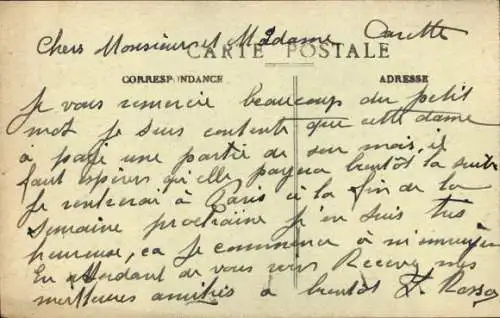 Chers Monsieur et Madame Carette
CARTE POSTALE
CORRESPONDANCE
ADRESSE
Je vous remercie beaucoup du petit
mot je suis contente que cette dame
à payé une partie de son mois, il
faut espérer qu'elle payera bientôt la suite
Je rentrerai à Paris à la fin de la
semaine prochaine j'en suis très
heureuse, ca je commence à m'ennuyer
En attendant de vous voir Recevez mes
meilleures amitiés à bientôt